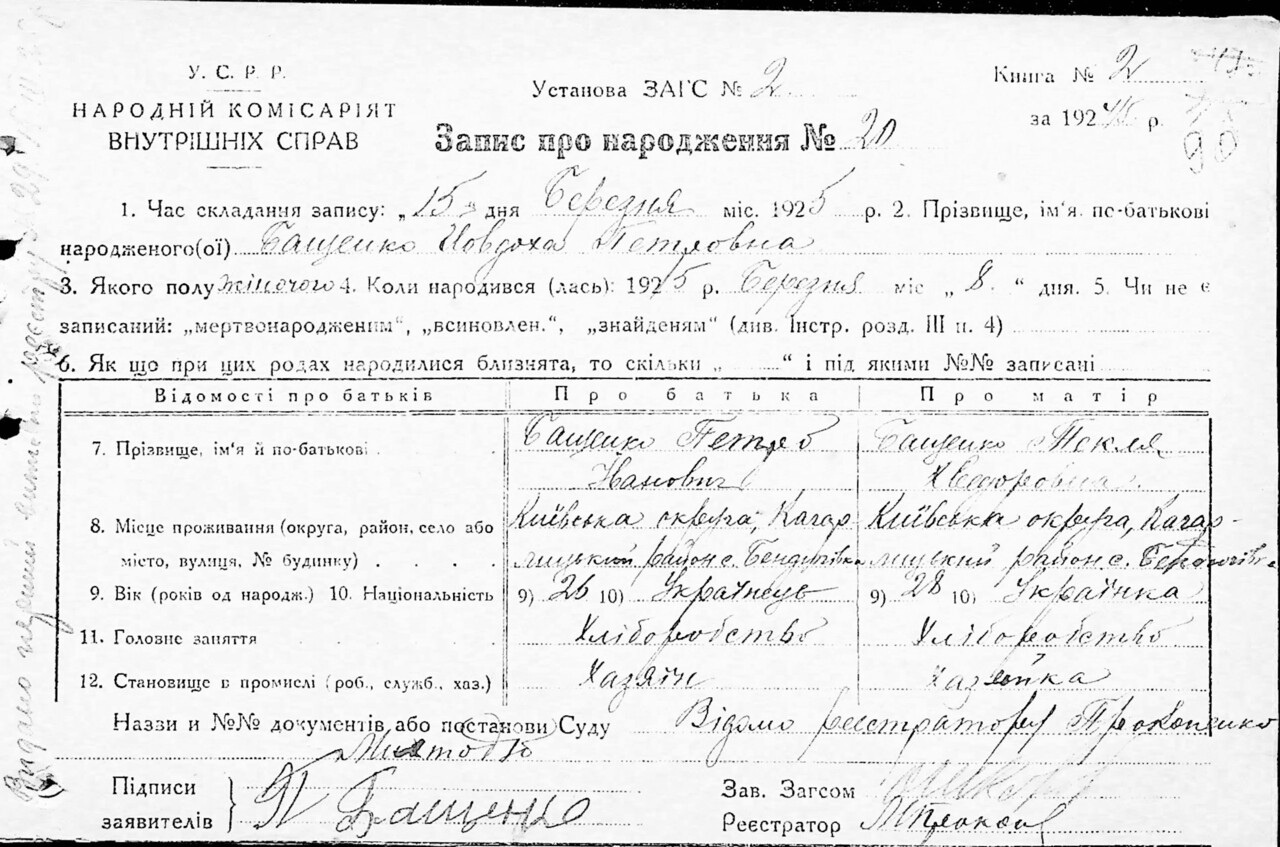 У. С. Р. Р.
НАРОДНІЙ КОМІСАРІЯТ
ВНУТРІШНІХ СПРАВ
Установа ЗАГС № 2
Книга № 2
за 1925 р.
90
Запис про народження № 20
1. Час складання запису: „15" дня Березня міс. 1925 р. 2. Прізвище, ім'я. по-батькові
народженого(ої) Бащенко Ивдоха Петровна
3. Якого полу жіночого 4. Коли народився (лась): 1925 р. Березня міс „8" дня. 5. Чи не є
записаний: „мертвонародженим", „всиновлен.", „знайденям" (див. Інстр. розд. III п. 4)
6. Як що при цих родах народилися близнята, то скільки „ " і під якими №№ записані
Відомості про батьків Про батька Про матір
7. Прізвище, ім'я й по-батькові Бащенко Петро Иванович Бащенко Текля Хведоровна
8. Місце проживання (округа, район, село або Київська округа, Кагар- Київська округа, Кагар-
місто, вулиця, № будинку) лицький район с. Бендугівка лицький район с.
9. Вік (років од народж.) 10. Національність 9) 26 10) Українець 9) 28 10) Українка
11. Головне заняття Хліборобство Хліборобство
12. Становище в промислі (роб., служб., хаз.) Хазяїн Хазяйка
Назви и №№ документів або постанови Суду Відомо реєстратору Прокопенко
Підписи
заявителів П Бащенко
Зав. Загсом
Реєстратор
Видано перший витяг